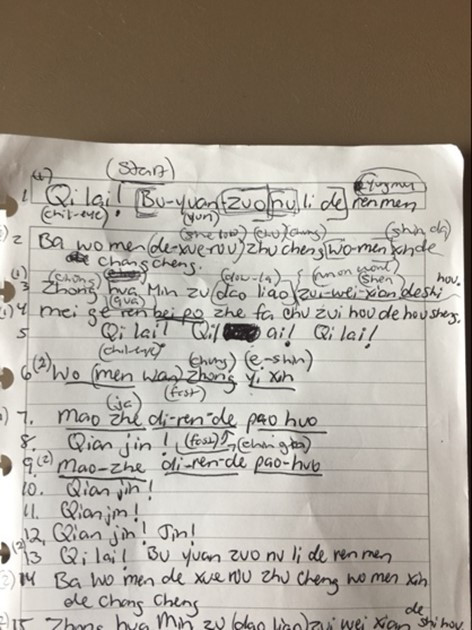 (Start)
1 Qi lai! Bu-yuan zuo nu li de ren men
(chil-eye) (yun)
(chu) (chung) (shin da)
2 Ba wo men (de-xue-rou) zhu cheng wo-men xin de
chang cheng.
3 Zhong hua Min zu (dao liao) zui-wei-xian de shi hou.
(gua) (shen)
4 mei ge ren bei po zhe fa chu zui hou de hou sheng.
5 Qi lai! Qi lai! Qi lai!
(chil-eye) (chung) (e-shin)
6 (2) Wo (men wan) zhong yi xin
(ja) (fast)
7. Mao zhe di-ren-de pao huo
8. Qian jin! (fast)
9 (2) Mao-zhe di-ren-de pao-huo
10. Qian jin!
11. Qian jin!
12. Qian jin! Jin!
13 Qi lai! Bu yuan zuo nu li de ren men
14 Ba wo men de xue rou zhu cheng wo men xin
de chang cheng
de
15 Zhong hua Min zu (dao liao) zui wei xian shi hou